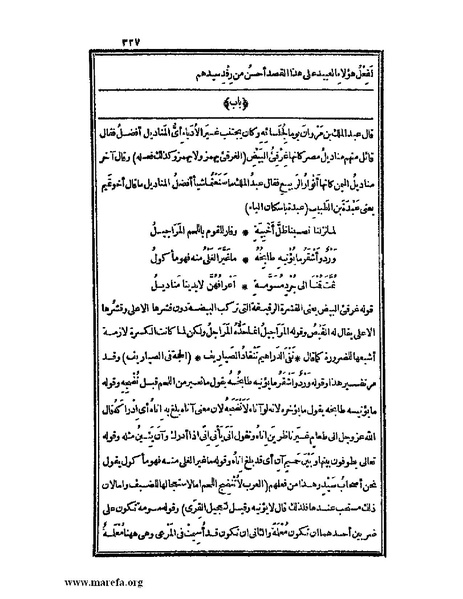 ٣٢٧
لَفِعْلُ هؤلاء العبيد على هذا القصد أحسنُ من رِفْدِ سيدهم
﴿باب﴾
قال عبد الملك بن مروان يوما لجلسائه وكان يجتنب غير الأدباء أىُّ المناديل أفضلُ فقال
قائل منهم مناديلُ مصر كأنها غِرْقِئُ البيض (الغرقئ يهمز ولا يهمز وكذلك فعله) وقال آخر
مناديلُ اليمن كأنها أنْوارُ الربيع فقال عبد الملك ما صَنَعْتما شيأ أفضلُ المناديل ما قال أخو تميم
يعنى عَبْدَةَ بن الطبيب (عبدة باسكان الباء)
لما نزلنا نصبنا ظلَّ أخْبِيةٍ * وفار للقوم باللحم المَراجِيلُ
وَرْدٌ وأشقَرُ ما يُؤْنِيهِ طابخُهُ * ما غَيَّرَ الغَلْىُ منه فهو مأكولُ
ثُمَّتَ قُمْنا الى جُرْدٍ مُسَوَّمَةٍ * أعرافُهُنَّ لايدينا مَناديلُ
قوله غرقئ البيض يعنى القشرة الرقيقة التى تركب البيضة دون قشرها الاعلى وقشرُها
الاعلى يقال له القَيْضُ وقوله المراجيلُ انما حَدُّه المَرَاجلُ ولكن لما كانت الكسرة لازمة
أشبعها للضرورة كما قال * نَفْىَ الدراهيم تَنْقادُ الصياريف * (الحجة فى الصياريف) وقد
مرتفسير هذا وقوله وردٌ وأشقرُ ما يؤنيه طابخُه يقول ما تغير من اللحم قبل نُضْجِه وقوله
ما يؤنيه طابخه يقول ما يؤخره لانه لو آناه لَأَنْضَجَه لان معنى آناه بلغ به إناهُ أى إدراكَه قال
الله عز وجل الى طعامٍ غيرَ ناظرين إناهُ وتقول أنَى يَأنِى إنًى اذا أدرك وآن يَئِينُ مثله وقوله
تعالى يطوفون بينها وبيْن حَميمٍ آنٍ أى قد بلغ إناهُ وقوله ما غير الغلى منه فهو مأكول يقول
نحن أصحابُ صَيْدٍ وهذا من فعلهم (العرب لا تُنْضِجُ اللحم اما لاستعجالها للضيف واما لان
ذلك مستحب عندها فلذلك قال لا يؤنيه وقيل تعجيل القِرَى) وقوله مسومة تكون على
ضربين أحدهما ان تكون مُعْلَمَةً والثانى ان تكون قد أُسيمتْ فى المَرْعى وهى ههنا مُعْلَمَةٌ
www.marefa.org